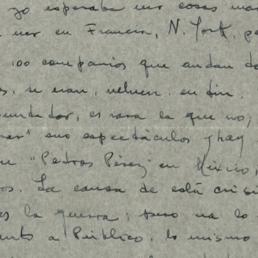 yo esperaba ver cosas
ver en Francia, N. York,
100 compañías que andan
s, u van, vuelven. en fin.
es rara la que no,
" esos espectáculos y hay
"Pedros Pérez" en México,
os. La causa de está crisis
es la guerra; pero ya lo
a Público, lo mismo